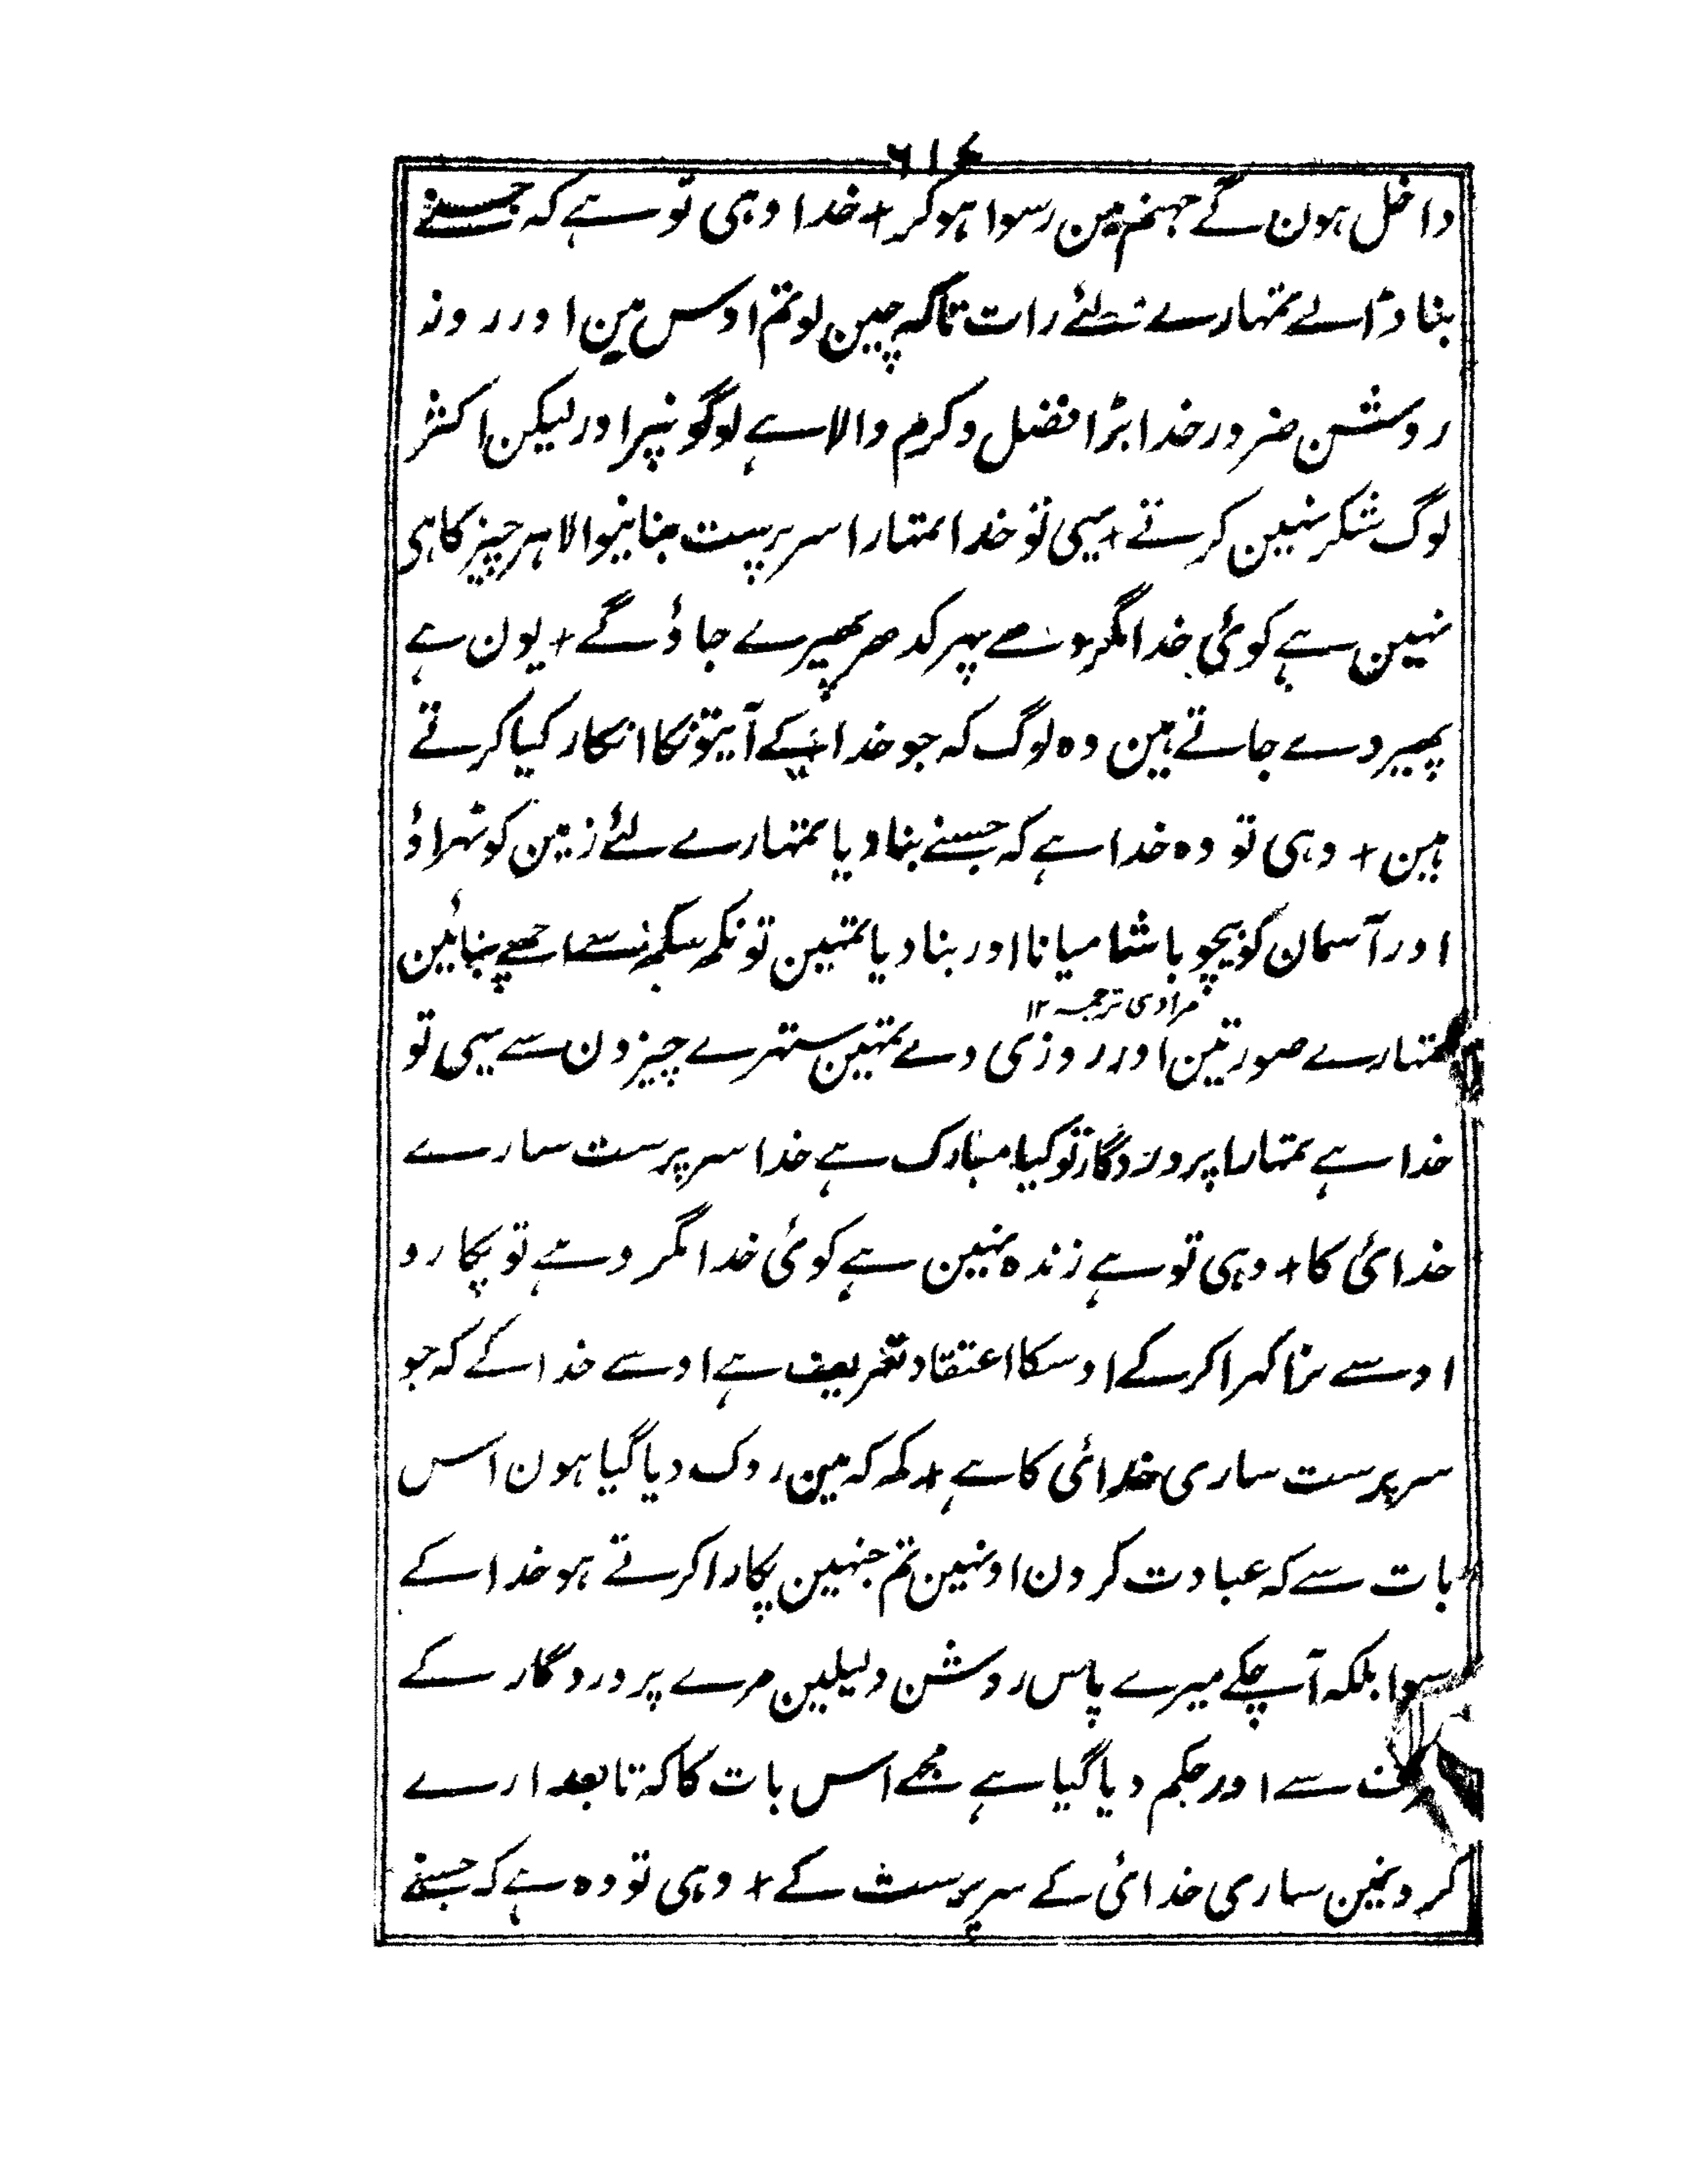 ۶۱۶
داخل ہون گے جہنم مین رسوا ہوکر + خدا وہی تو ہے کہ جسنے
بنا ڈالے تمہارے لئے رات تاکہ چین لو تم اوس مین اور روز
روشن ضرور خدا بڑا فضل و کرم والا ہے لوگونپر اور لیکن اکثر
لوگ شکر نہین کرتے + یہی تو خدا تمہارا سرپرست بنانیوالا ہر چیز کا ہی
نہین ہے کوئی خدا مگر وہے پہر کدھر پھیرے جاؤ گے + یون ہے
پھیر دے جاتے ہین وہ لوگ کہ جو خدا کے آیتونکا انکار کیا کرتے
ہین + وہی تو وہ خدا ہے کہ جسنے بنا دیا تمہارے لئے زمین کو ٹہراؤ
اور آسمان کو بیچوبا شامیانا اور بنا دیا تمہین تو نکہ سکہ سے اچھے بنائین
مرادی ترجمہ ۱۲
تمہارے صورتین اور روزی دے تمہین ستھرے چیزون سے یہی تو
خدا ہے تمہارا پروردگار تو کیا مبارک ہے خدا سرپرست سارے
خدائی کا + وہی تو ہے زندہ نہین ہے کوئی خدا مگر وہے تو پکارو
اوسے نرا کہرا کرکے اوسکا اعتقاد تعریف ہے اوسے خدا کے کہ جو
سرپرست ساری خدائی کا ہے + کہہ کہ مین روک دیا گیا ہون اس
بات سے کہ عبادت کرون اونہین تم جنہین پکارا کرتے ہو خدا کے
سوا بلکہ آ چکے میرے پاس روشن دلیلین مرے پروردگار کے
طرف سے اور حکم دیا گیا ہے مجھے اس بات کا کہ تابعدارے
کرو نمین ساری خدائی کے سرپرست کے + وہی تو وہ ہے کہ جسنے